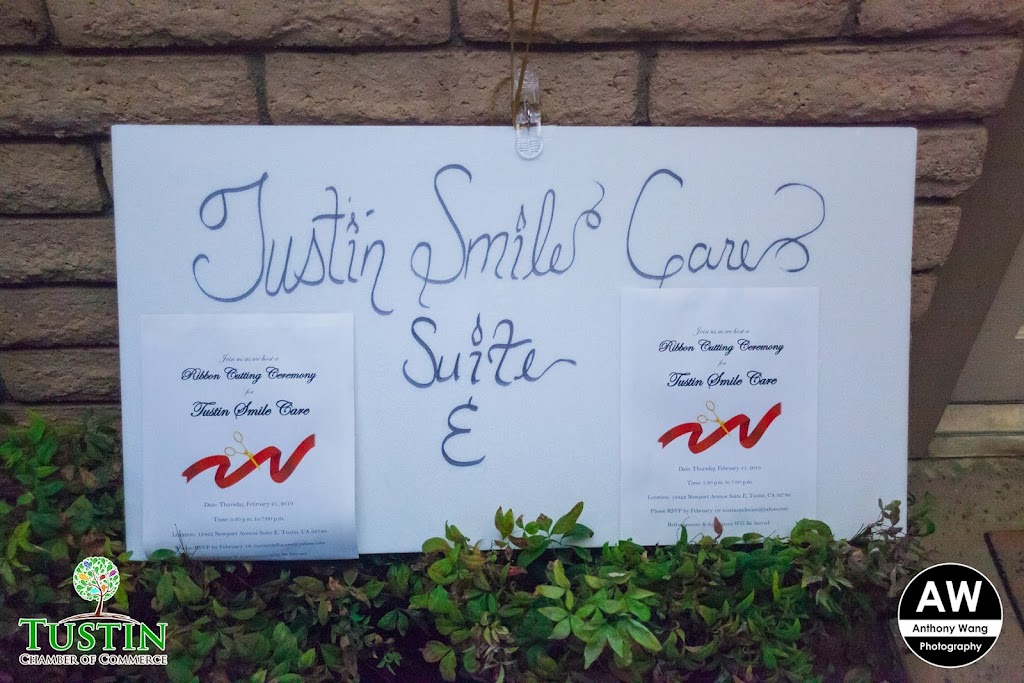 Tustin Smile Care
Suite
E
Join us as we host a
Ribbon Cutting Ceremony
for
Tustin Smile Care
Date: Thursday, February 21, 2019
Time: 5:30 p.m. to 7:00 p.m.
Location: Newport Avenue Suite E, Tustin, CA 92780
Please RSVP by February 18,
Join us as we host a
Ribbon Cutting Ceremony
for
Tustin Smile Care
Date: Thursday, February 21, 2019
Time: 5:30 p.m. to 7:00 p.m.
Location: Newport Avenue Suite E, Tustin, CA 92780
Please RSVP by February 18,
Refreshments & Will Be Served
TUSTIN
CHAMBER OF COMMERCE
AW
Anthony Wang
Photography